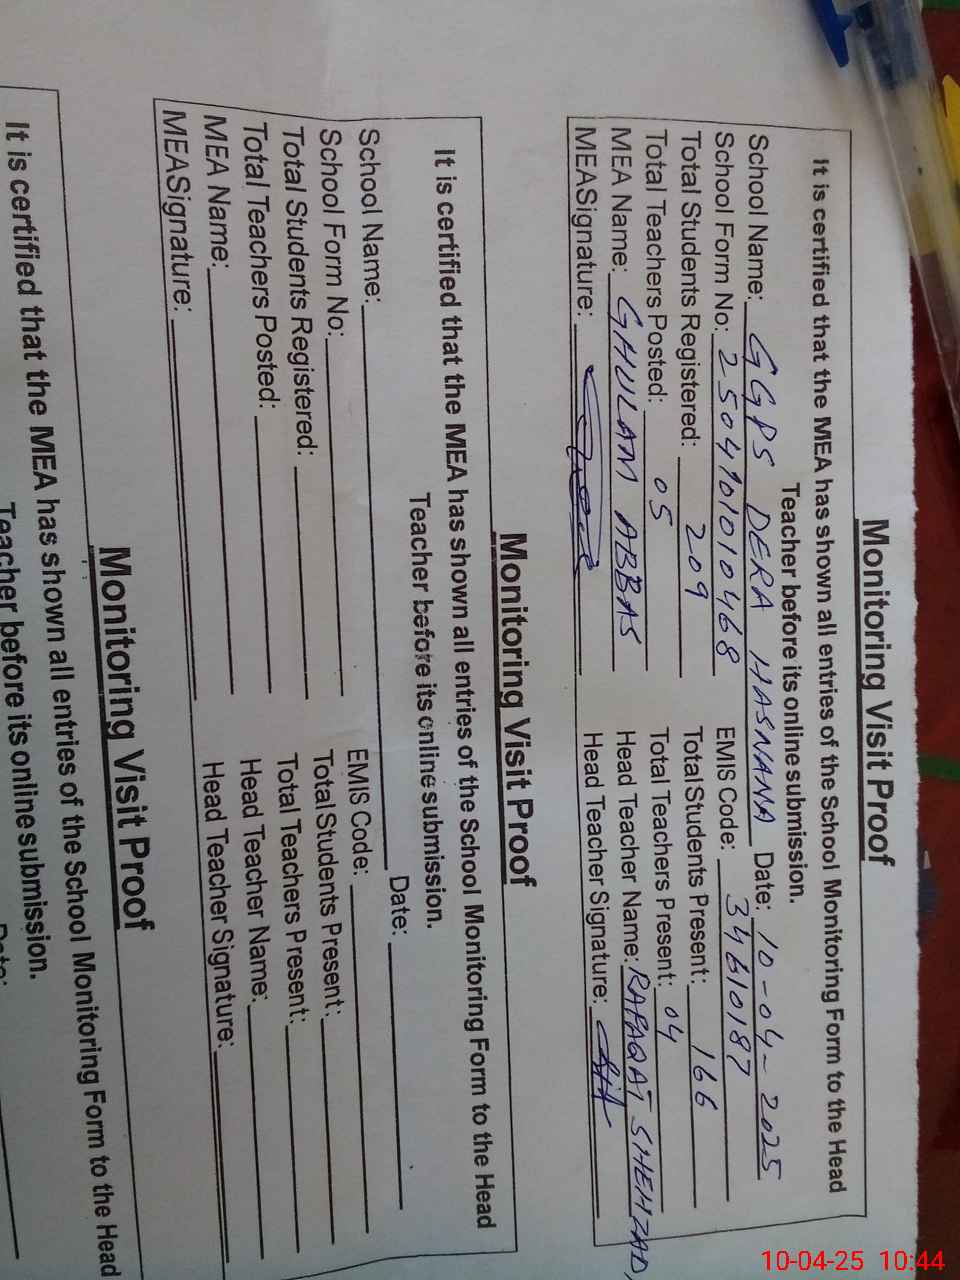 Monitoring Visit Proof
It is certified that the MEA has shown all entries of the School Monitoring Form to the Head
Teacher before its online submission.
School Name: GGPS DERA HASNANA Date: 10-04-2025
School Form No: 2504101010468 EMIS Code: 34610187
Total Students Registered: 209 Total Students Present: 166
Total Teachers Posted: 05 Total Teachers Present: 04
MEA Name: GHULAM ABBAS Head Teacher Name: RAFAQAT SHEHZAD,
MEASignature: Head Teacher Signature:
Monitoring Visit Proof
It is certified that the MEA has shown all entries of the School Monitoring Form to the Head
Teacher before its online submission.
School Name: Date:
School Form No: EMIS Code:
Total Students Registered: Total Students Present:
Total Teachers Posted: Total Teachers Present:
MEA Name: Head Teacher Name:
MEASignature: Head Teacher Signature:
Monitoring Visit Proof
It is certified that the MEA has shown all entries of the School Monitoring Form to the Head
Teacher before its online submission.
10-04-25 10:44